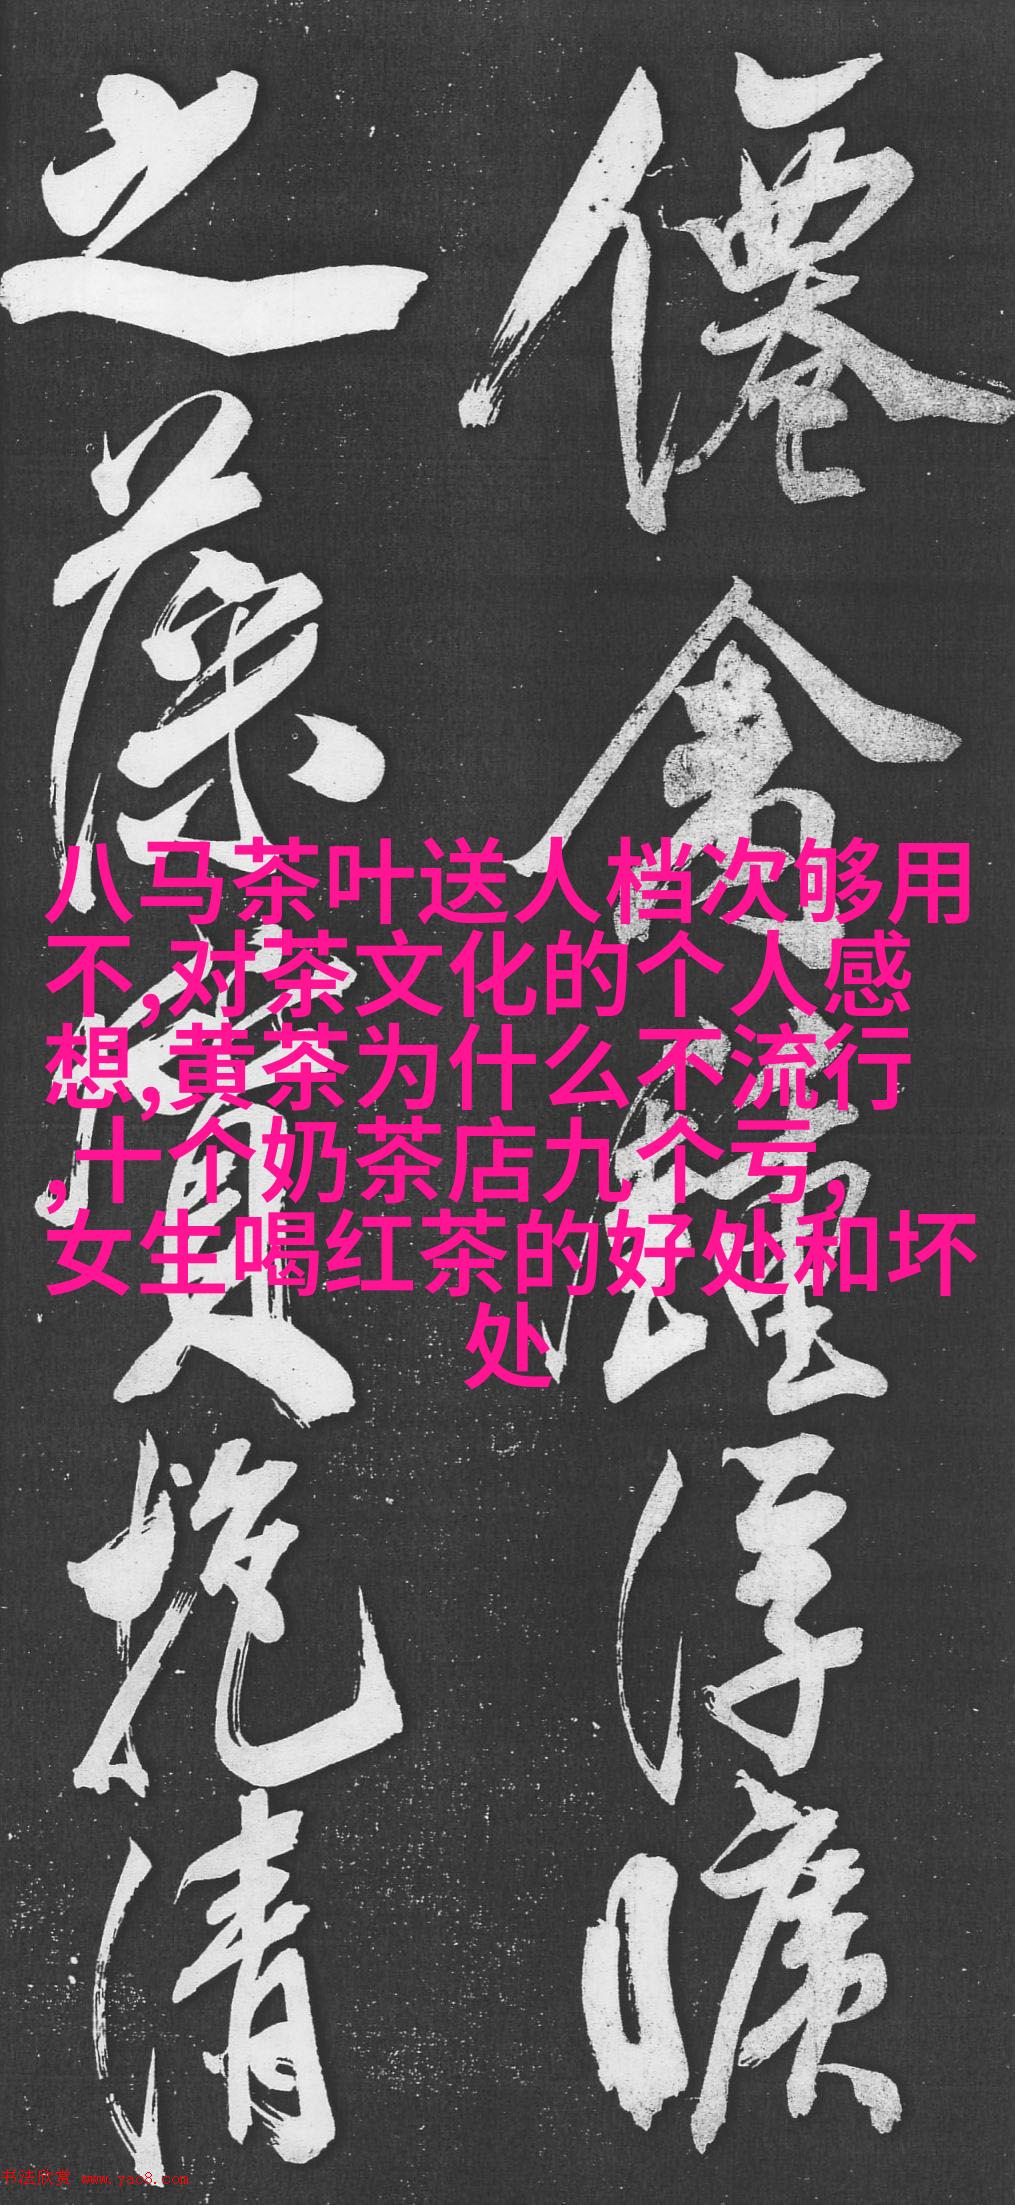 八马茶叶送人档次够用
不,对茶文化的个人感
想,黄茶为什么不流行
,十个奶茶店九个亏,
女生喝红茶的好处和坏
处
僊禽鍾浮曠
之藻質抱清
书法欣赏 www.yac8.com